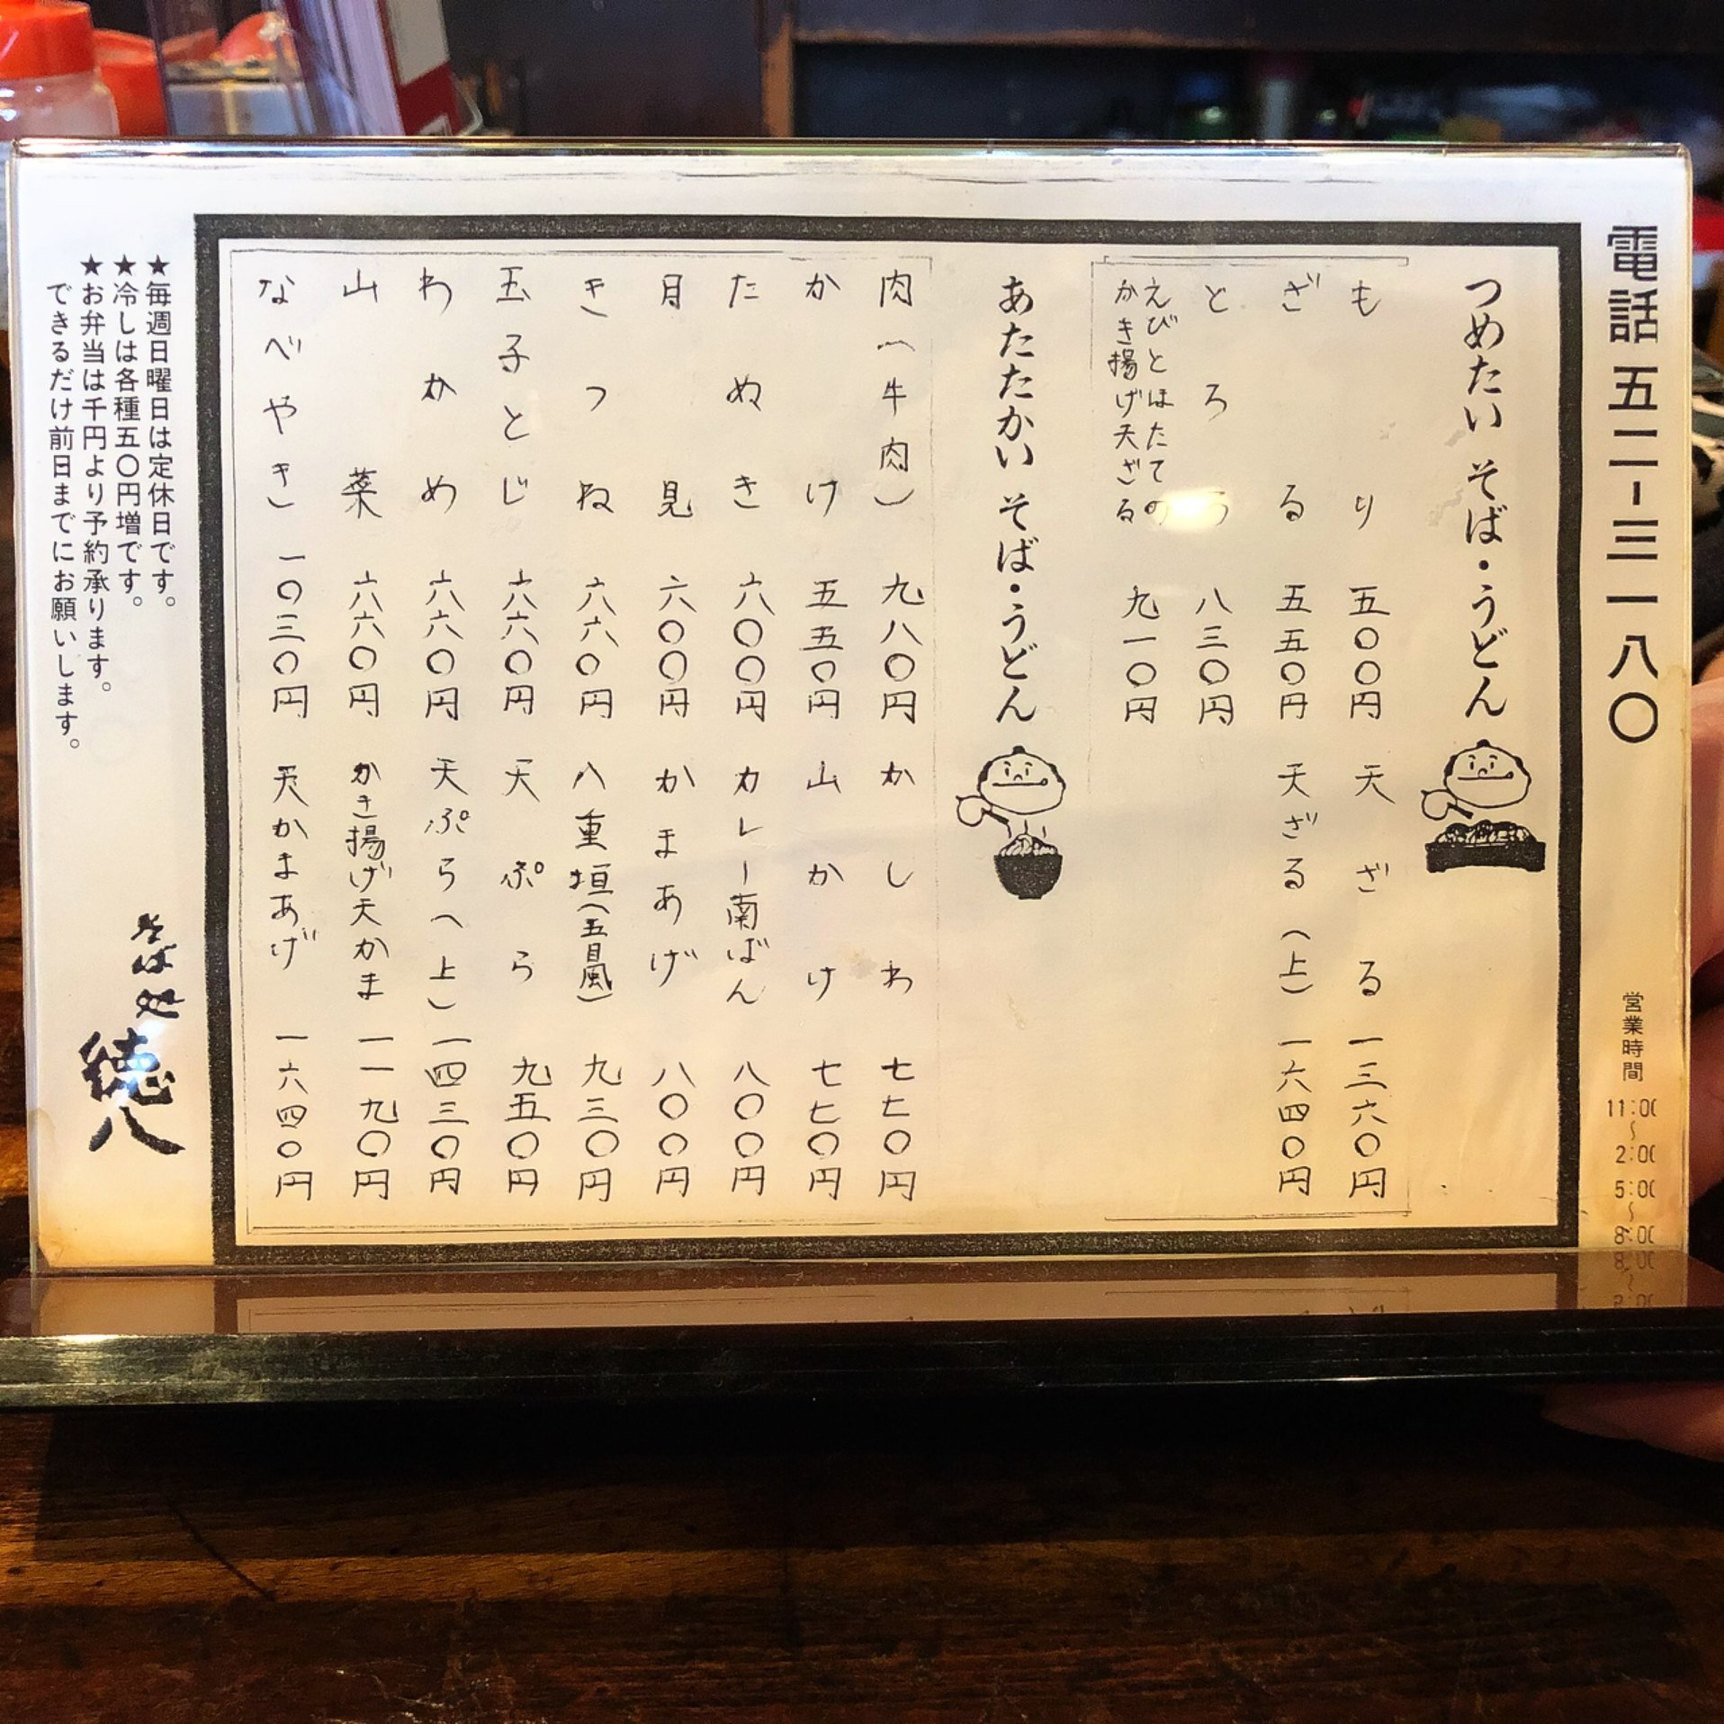 電話 五二-三一八〇
営業時間 11:00〜2:00 5:00〜8:00
つめたい そば・うどん
もり 五〇〇円 天ざる 一三六〇円
ざる 五五〇円 天ざる(上) 一六四〇円
とろろ 八三〇円
えびとほたての
かき揚げ天ざる 九一〇円
あたたかい そば・うどん
肉(牛肉) 九八〇円 かしわ 七七〇円
かけ 五五〇円 山かけ 七七〇円
たぬき 六〇〇円 カレー南ばん 八〇〇円
月見 六〇〇円 かまあげ 八〇〇円
きつね 六六〇円 八重垣(五目風) 九三〇円
玉子とじ 六六〇円 天ぷら 九五〇円
わかめ 六六〇円 天ぷら(上) 一四三〇円
山菜 六六〇円 かき揚げ天かま 一一九〇円
なべやき 一〇三〇円 天かまあげ 一六四〇円
★毎週日曜日は定休日です。
★冷しは各種五〇円増です。
★お弁当は千円より予約承ります。
できるだけ前日までにお願いします。
そば処
徳八